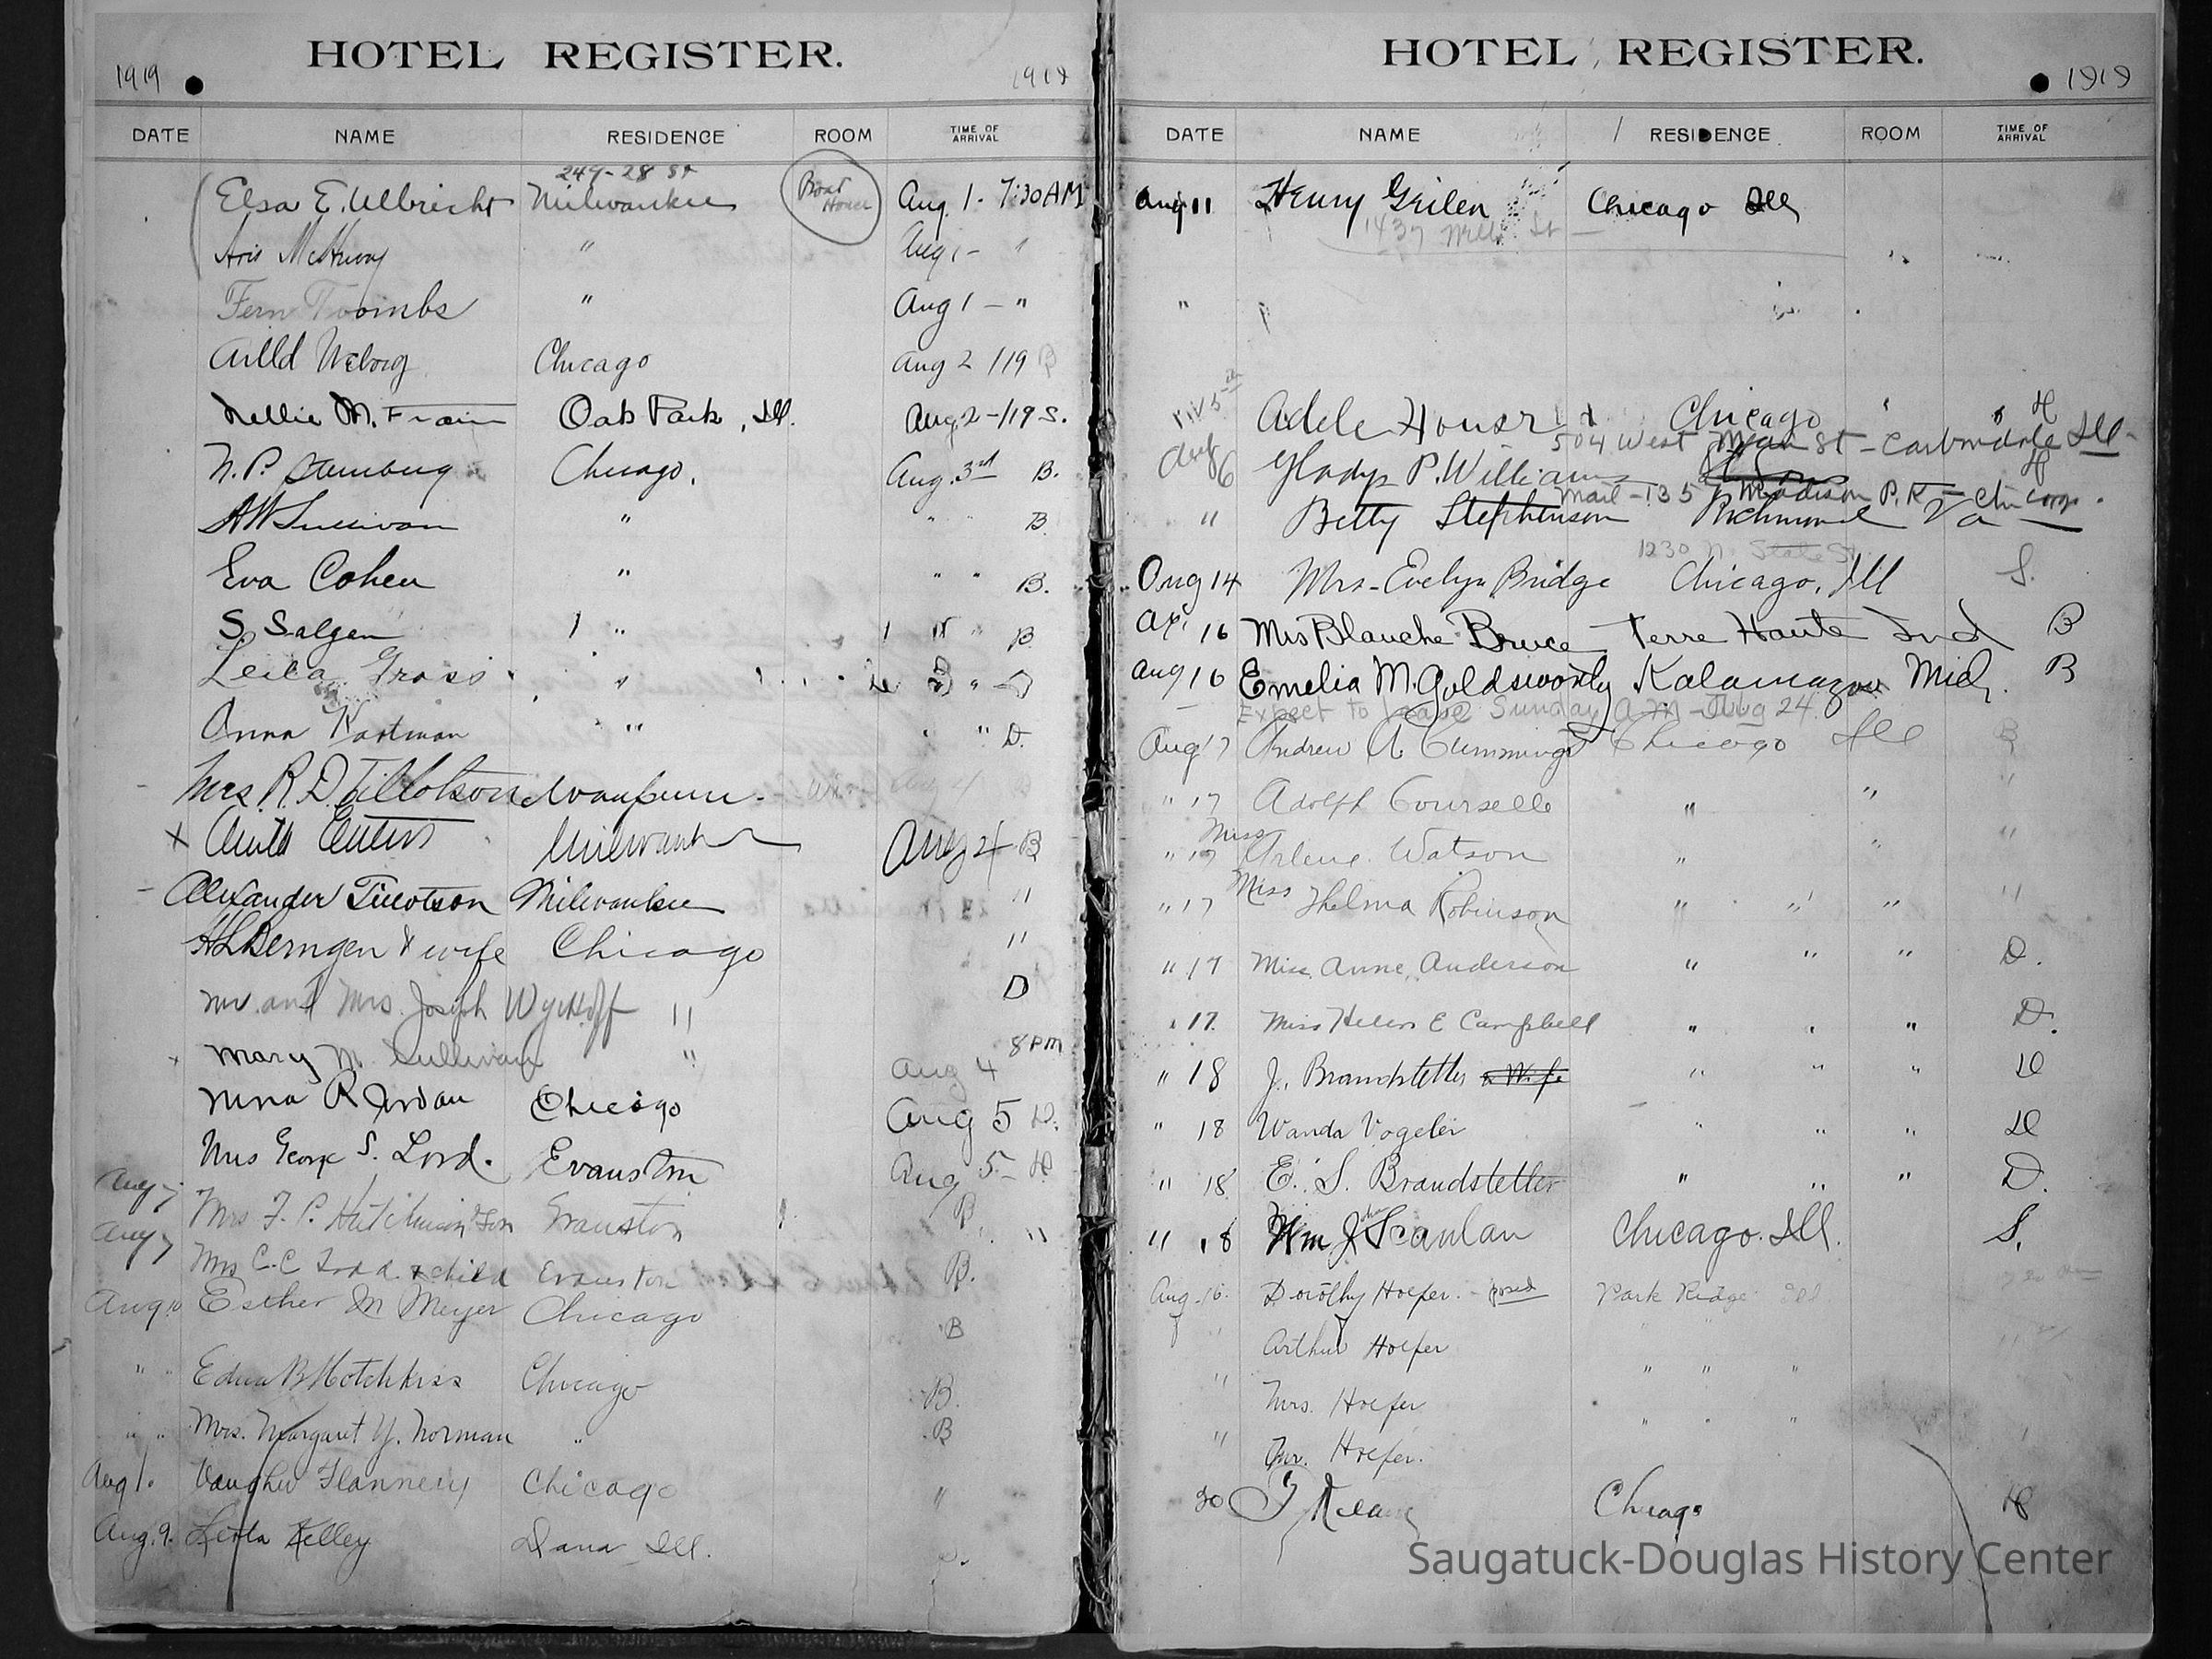 HOTEL REGISTER.
1919
1919
DATE NAME RESIDENCE ROOM TIME OF ARRIVAL
249-28 St
Elsa E. Ulbricht Milwaukee Boat House Aug. 1 - 7:30 AM
Aug 1 -
Fern Toombs " Aug 1 - "
Chicago Aug 2 /19 B
Nellie M. Frain Oak Park, Ill. Aug 2 - /19 S.
Chicago. Aug. 3rd B.
A W Sullivan " " B.
Eva Cohen " " " B.
S. Salgen " " " B
Leila Gross " "
Anna Kortman " " " D.
Mrs. R. D. Tillotson Waupun.
x Milwaukee Aug 4 B
- Alexander Tillotson Milwaukee "
& wife Chicago "
Mr. and Mrs. Joseph Wyckoff " D
Mary M. Sullivan " Aug 4 8 PM
Nina R Jordan Chicago Aug 5 D.
Mrs George S. Lord. Evanston Aug 5 - H
Aug 7 Mrs F. P. Hutchinson & Son Evanston B "
Aug 7 Mrs C. C. Todd & child Evanston B.
Aug 10 Esther M Meyer Chicago B
" " Edna B Hotchkiss Chicago B.
" " Mrs. Margaret Y. Norman " B
Aug 10 Vaughn Flannery Chicago "
Aug. 9. Leila Kelley Dana Ill.
HOTEL REGISTER.
1919
DATE NAME RESIDENCE ROOM TIME OF ARRIVAL
Aug 11 Henry Chicago Ill
1437 St
"
Adele Chicago " H
504 West Main St - Carbondale Ill
Aug 6 Gladys P. Williams H
Mail - 1357 Madison P. K -
" Betty Stephenson Richmond Va
1230 N. State St.
Aug 14 Mrs - Evelyn Bridge Chicago, Ill S.
16 Mrs Blanche Bruce Terre Haute Ind B
Aug 16 Emelia M. Goldsworthy Kalamazoo Mich. B
Expect to leave Sunday A M - Aug 24.
Aug 17 Andrew A Cummings Chicago Ill B
" 17 Adolph Courselle " " "
" 17 Miss Arlene Watson " " "
" 17 Miss Thelma Robinson " " " "
" 17 Miss Anne Anderson " " " D.
" 17. Miss Helen E Campbell " " " D.
" 18 J. Brandstetter & Wife " " " D
" 18 Wanda Vogeler " " " D
" 18 E. S. Brandstetter " " " D.
" 18 Wm J Scanlan Chicago. Ill. S.
Aug. 16. Dorothy Hoefer. - Park Ridge Ill
" Arthur Hoefer " "
" Mrs. Hoefer " " "
" Mr. Hoefer. " " "
20 Chicago H
Saugatuck-Douglas History Center